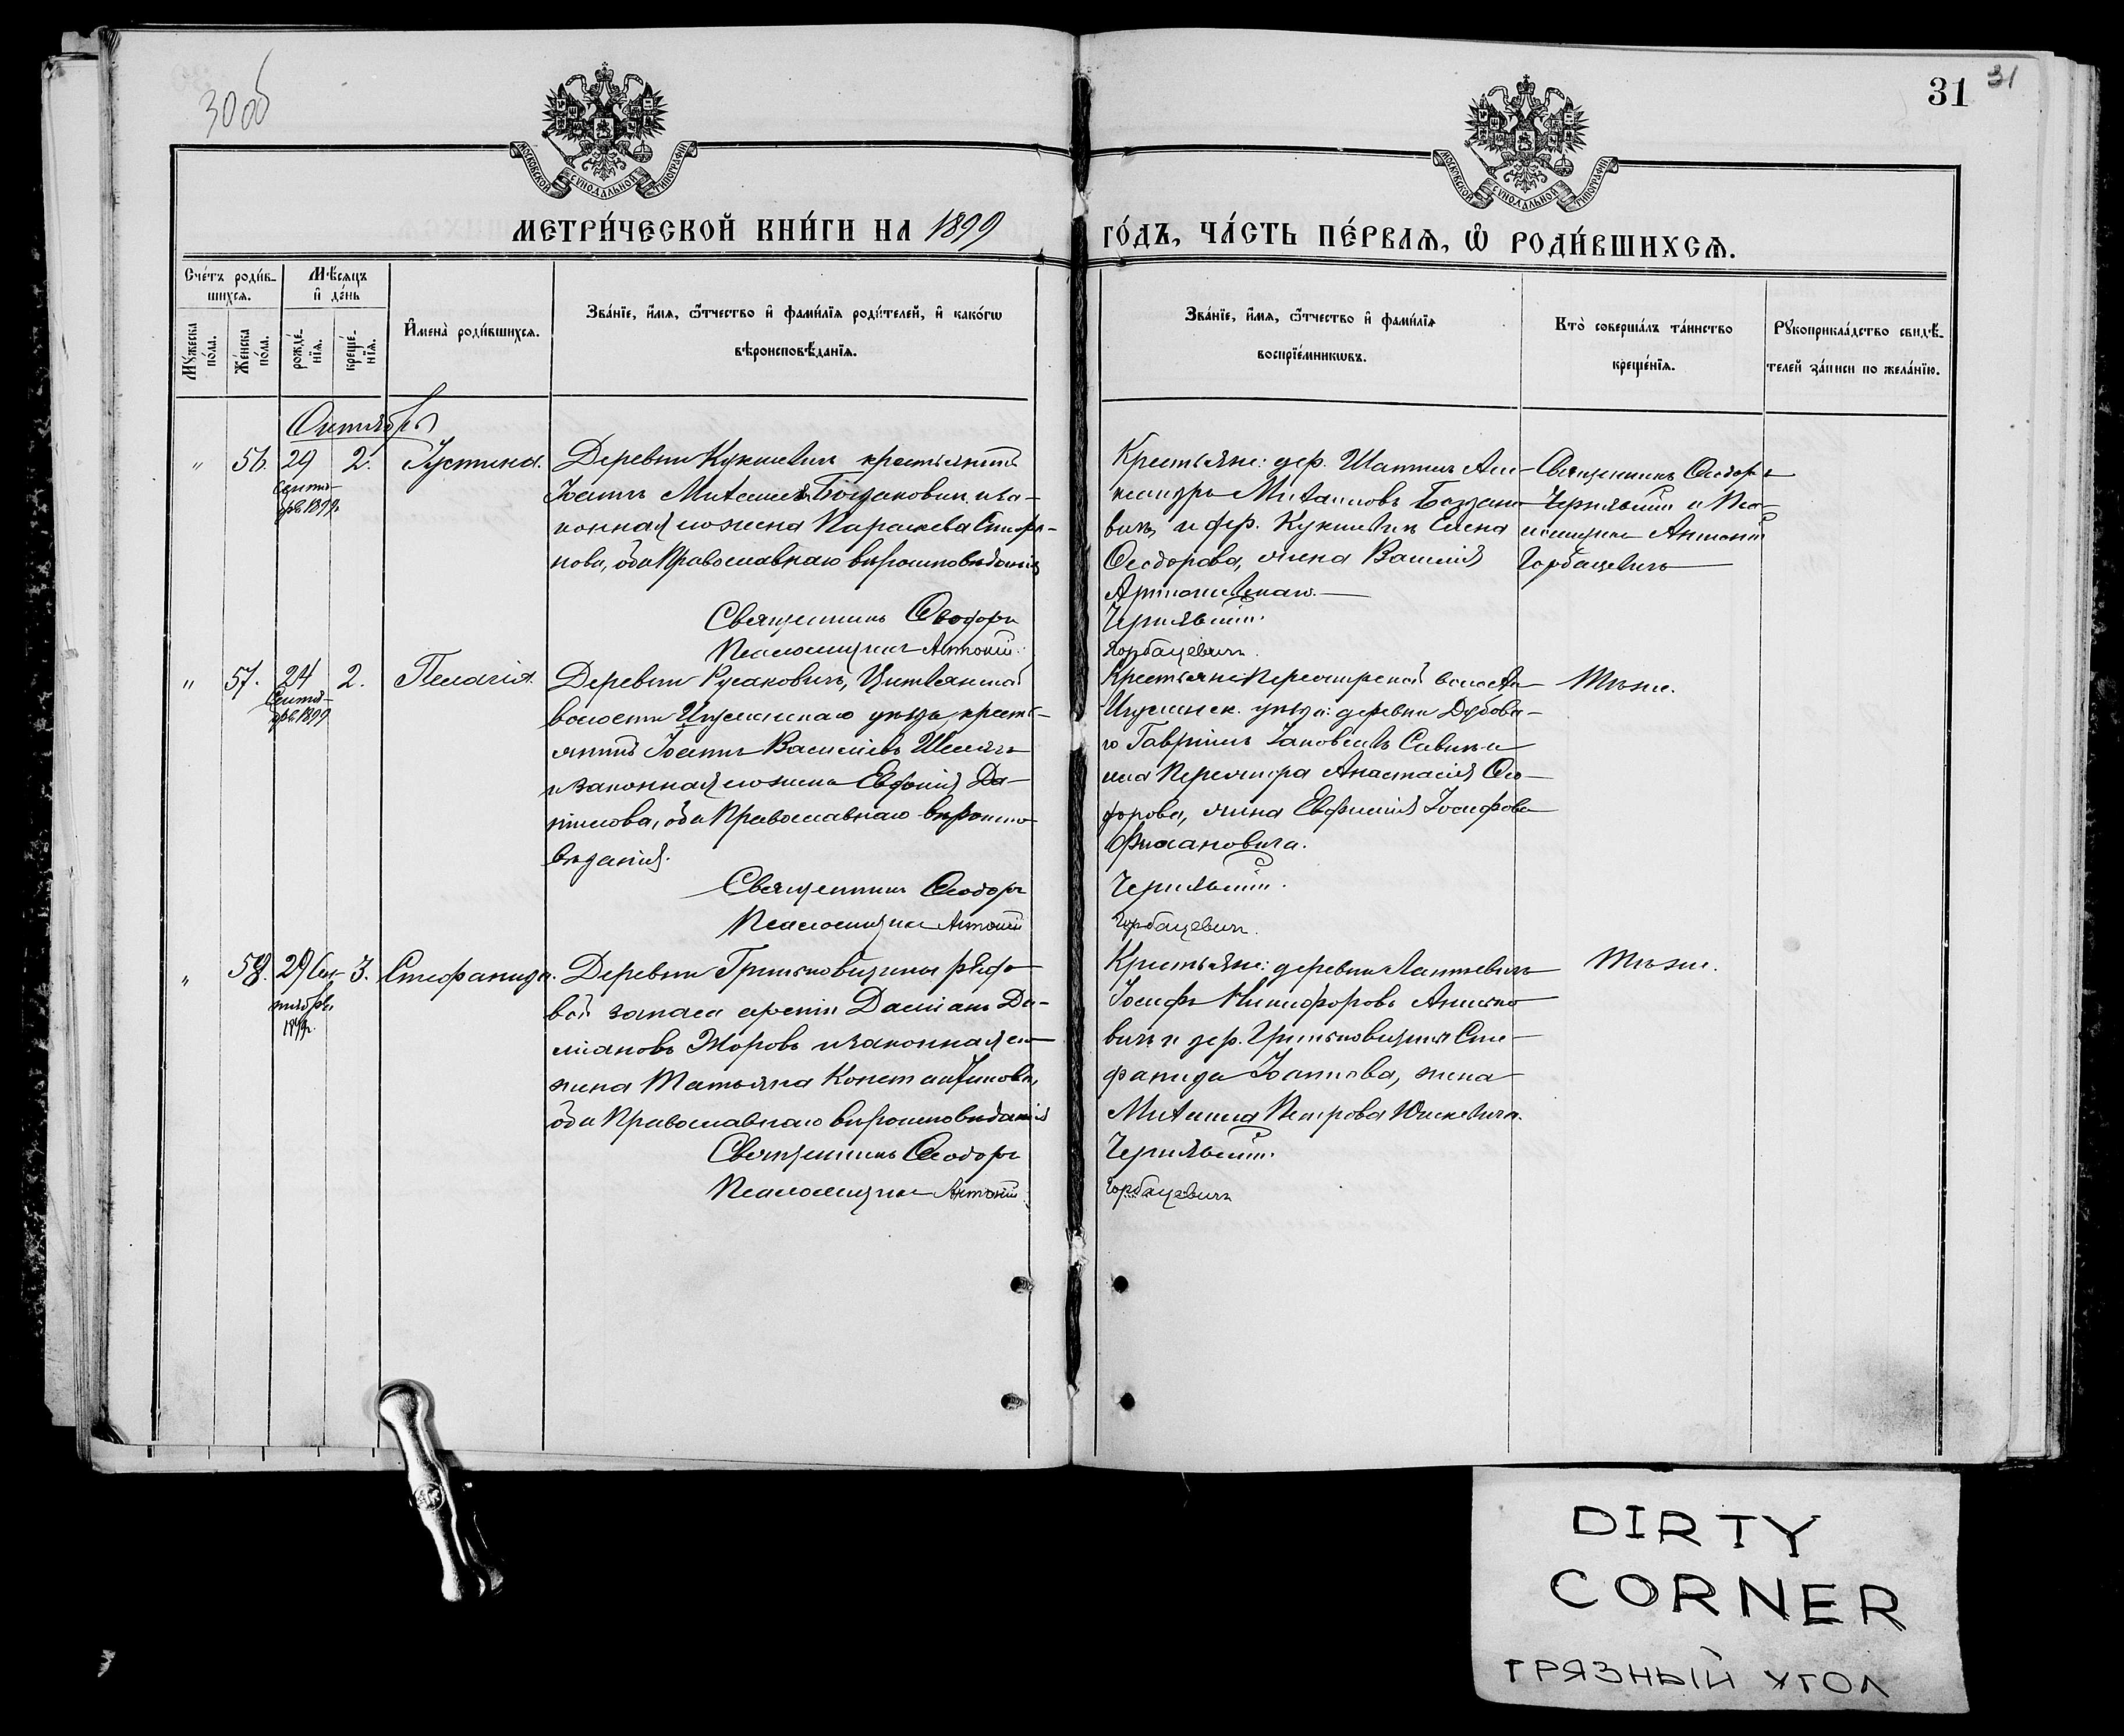 30об
31
31
МОСКОВСКОЙ СѴНОДАЛЬНОЙ ТИПОГРАФІИ
МОСКОВСКОЙ СѴНОДАЛЬНОЙ ТИПОГРАФІИ
МЕТРИ́ЧЕСКОЙ КНИ́ГИ НА 1899
ГО́ДЪ, ЧА́СТЬ ПЕ́РВАѦ, Ѡ РОДИ́ВШИХСѦ.
Сче́тъ роди́в-
шихсѧ.
Мѣ́сѧцъ
и де́нь
Мꙋ́жеска
по́ла.
Же́нска
по́ла.
рожде́-
нїѧ.
креще́-
нїѧ.
Имена̀ роди́вшихсѧ.
Зва́нїе, и́мѧ, ѻ҆́тчество и фами́лїѧ роди́телей, и како́гѡ
вѣроисповѣ́данїѧ.
Зва́нїе, и́мѧ, ѻ҆́тчество и фами́лїѧ
воспрїе́мникѡвъ.
Кто̀ соверша́лъ та́инство
креще́нїѧ.
Рꙋкоприкла́дство свидѣ́-
телей за́писи по жела́нїю.
Октябрь
" 56. 29 2. Іустина.
Сентя-
бря 1899г
Деревни Кукшевичъ крестьянинъ
Іоаннъ Михаиловъ Богдановичъ и за-
конная его жена Параскева Стефа-
нова, оба Православнаго вѣроисповѣданія
Священникъ Ѳеодоръ
Псаломщикъ Антоній
Крестьяне: дер. Шаптилъ Але-
ксандръ Михаиловъ Богдано-
вичъ, и дер. Кукшевичъ Елена
Ѳеодорова, жена Василія
Чернявскій.
Горбацевичъ.
Священникъ Ѳеодоръ
Чернявскій и Пса-
ломщикъ Антоній
Горбацевичъ
" 57. 24 2. Пелагія.
Сентя-
бря 1899
Деревни Русаковичъ, Цитвянской
волости Игуменскаго уѣзда, кресть-
янинъ Іоаннъ Василіевъ
и законная его жена Евдокія Да-
ніилова, оба Православнаго вѣроиспо-
вѣданія.
Священникъ Ѳеодоръ
Псаломщикъ Антоній
Крестьяне Перемирской волости
Игуменск. уѣзда: деревни Дубова-
го Гавріилъ Іаковлевъ Савич и
села Перемира Анастасія Ѳео-
дорова, жена Евфимія Іосифова
Чернявскій.
Горбацевичъ.
Тѣ же.
" 58. 29 Сен- 3. Стефанида.
тября
1899г.
Деревни Гриньковщины рядо-
вой запаса арміи Даміанъ Да-
міановъ Жоровъ и законная его
жена Татьяна Константинова,
оба Православнаго вѣроисповѣданія
Священникъ Ѳеодоръ
Псаломщикъ Антоній
Крестьяне: деревни Лаптевичъ
Іосифъ Никифоровъ Анисько-
вичъ и дер. Гриньковщины Сте-
фанида Іоаннова, жена
Михаила Петрова Юшкевича.
Чернявскій.
Горбацевичъ
Тѣ же.
DIRTY
CORNER
ГРЯЗНЫЙ УГОЛ